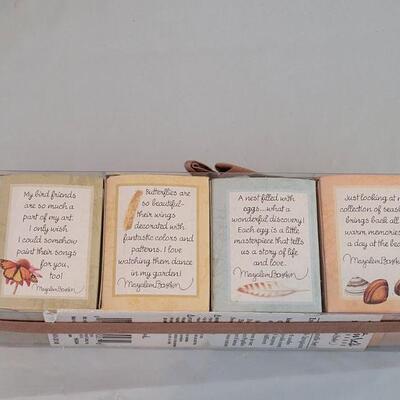 My bird friends
are so much a
part of my art.
I only wish
I could somehow
paint their songs
for you,
too!
Marjolein Bastin
Butterflies are
so beautiful-
their wings
decorated with
fantastic colors and
patterns. I love
watching them dance
in my garden!
Marjolein Bastin
A nest filled with
eggs...what a
wonderful discovery!
Each egg is a little
masterpiece that tells
us a story of life
and love.
Marjolein Bastin
Just looking at my
collection of
brings back all
warm memories
a day at the
Marjolein Bastin